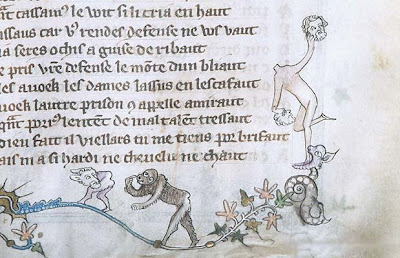 cassam9 le wit si li cria en haut
assaus car v9 rendes defense ne vo9 vaut
a seres ochis a guise de ribaut
e pris vre defense le monte dun bliaut
les avoek les dames lassus en lescafaut
avoek lautre prison q appelle amiraut
qnt porus lentent de mal talent tressaut
dieu fait il viellars tu me tiens por brifaut
mais ni a si hardi ne chevelu ne chaut